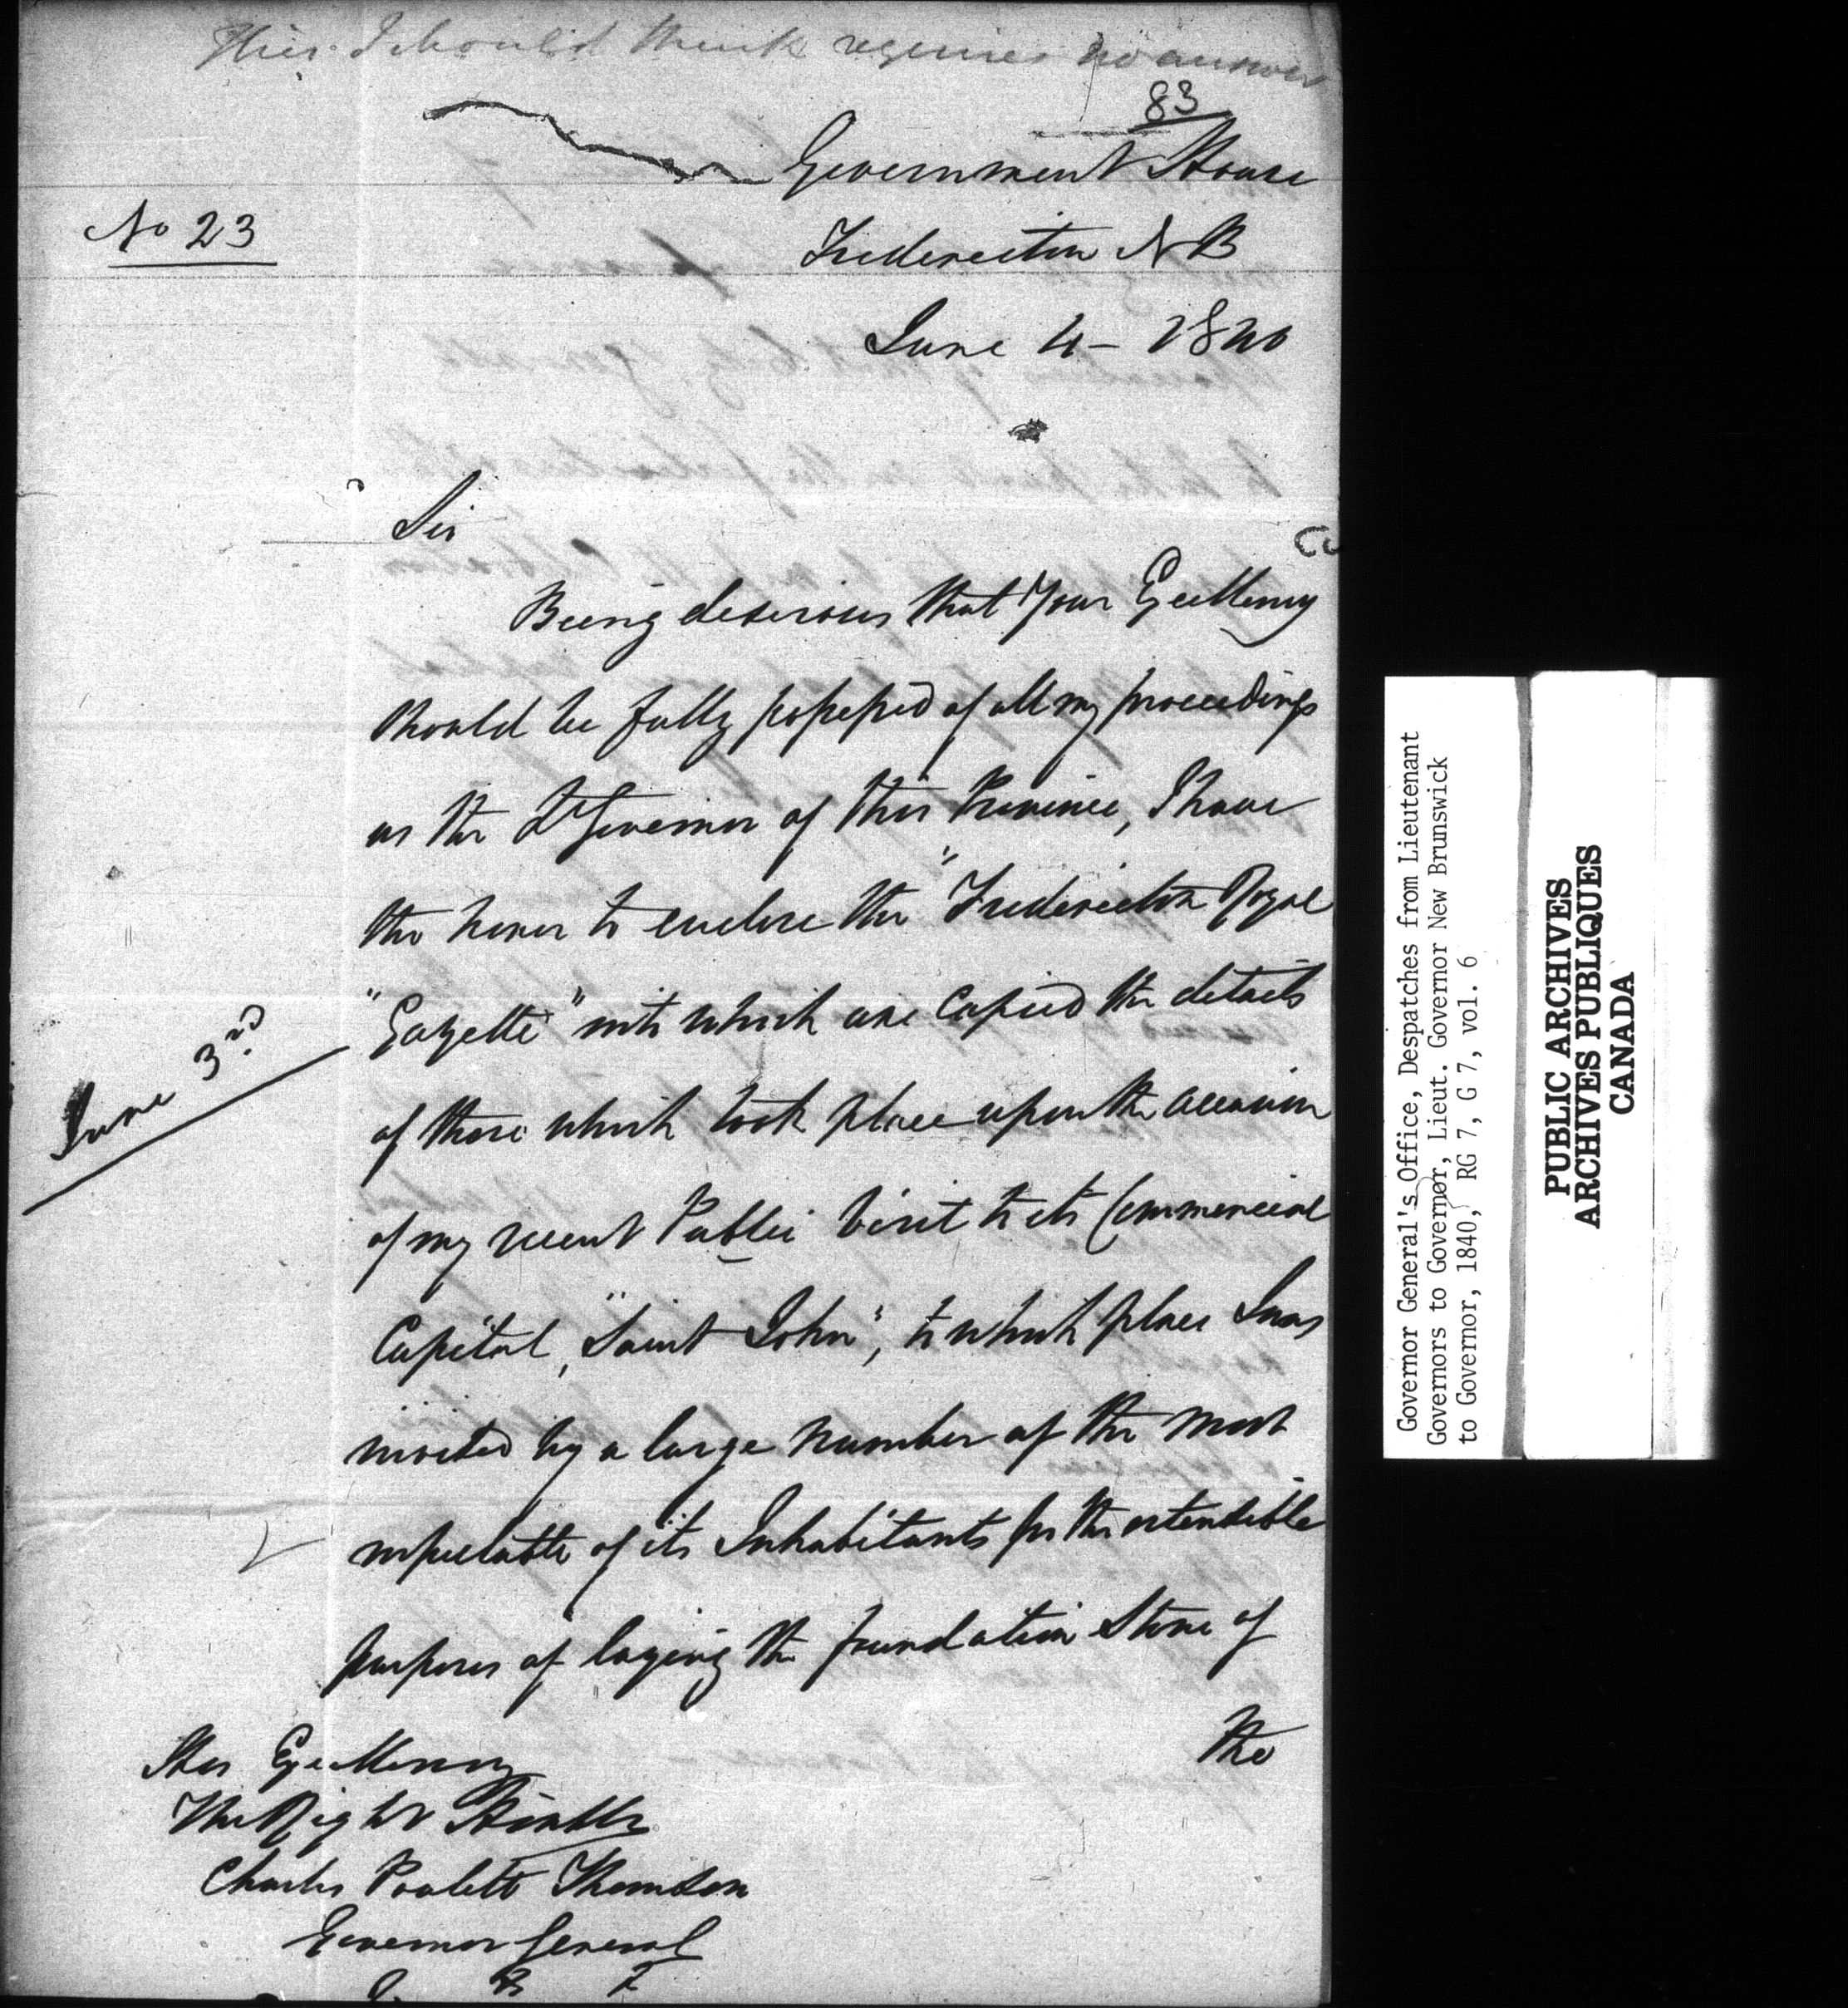 This I should think requires no answer
83
Government House
No 23
Fredericton NB
June 4 - 1840
Sir
Being desirous that Your Excellency
should be fully possessed of all my proceedings
as the Lt Governor of this Province, I have
the honor to enclose the "Fredericton Royal
"Gazette" into which are Copied the details
June 3rd
of those which took place upon the occasion
of my recent Public Visit to its Commercial
Capital, "Saint John", to which place I was
invited by a large number of the most
respectable of its Inhabitants for the ostensible
purposes of laying the foundation Stone of
the
His Excellency
The Right Honble
Charles Poulett Thomson
Governor General
Governor General's Office, Despatches from Lieutenant
Governors to Governor, Lieut. Governor New Brunswick
to Governor, 1840, RG 7, G 7, vol. 6
PUBLIC ARCHIVES
ARCHIVES PUBLIQUES
CANADA